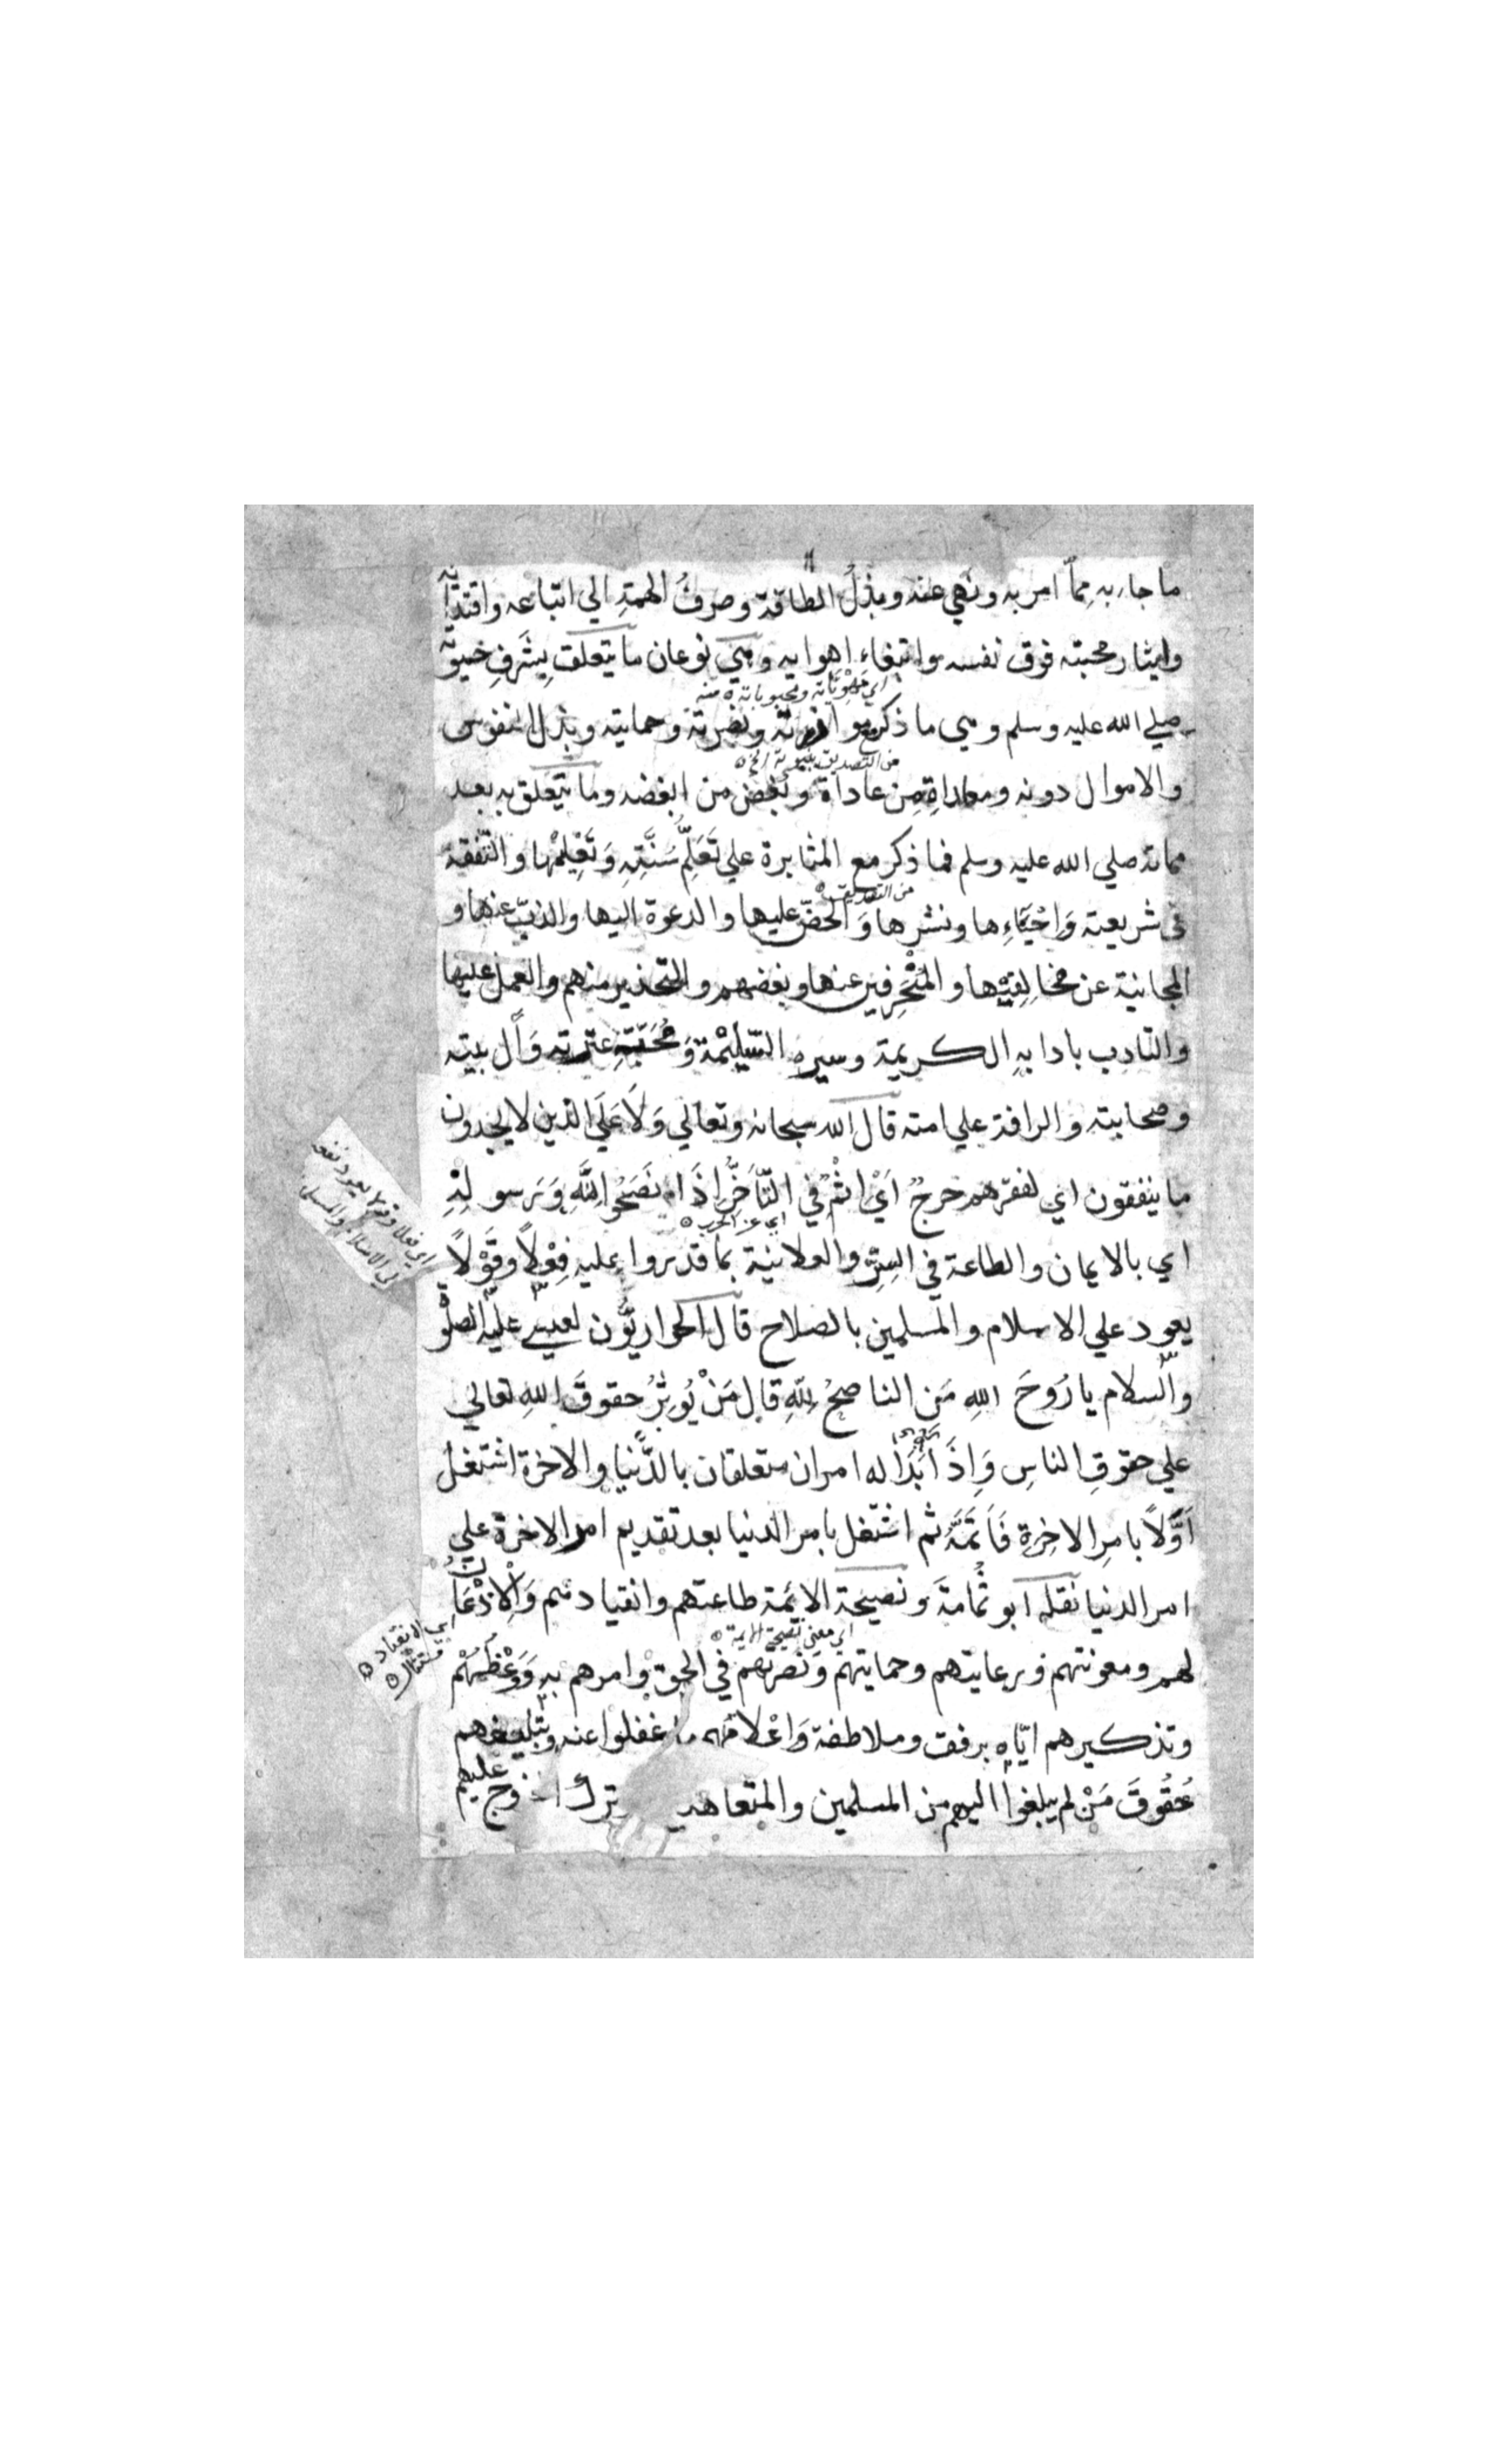 ما جاء به مِمّا امر به ونَهي عنه وبذلُ الطاقة وصرفُ الهمّةِ الي اتباعه واقتدائه
وايثار محبته فوق نفسه وابتغاء اهوايه وهي نوعان ما يتعلق بِشَرَفِ حيوته
اي مَهْوِيّاته ومحبوباته منه
صلي الله عليه وسلم وهي ما ذكر مع موازرته ونصرته وحمايته وبذل النفوس
من التصديق بنبوته الخ
والاموال دونه ومعاداةِ مِن عاداهُ وبُغض من ابغضه وما يتعلق به بعد
مماته صلي الله عليه وسلم فما ذكر مع المثابرة علي تَعَلّمِ سُنَّتِهِ وَتَعْلِيْمِها والتّفقه
من التصديق
في شريعته وَاِحْيَاءِها ونشرها وَالحضّ عليها والدعوة اليها والذبّ عنها و
المجانبة عن مخالِفِيْها والمُنْحَرِفين عنها وبغضهم والتحذير منهم والعمل عليها
والتادب بادابهِ الكريمة وسيره السَّلِيْمَة وَمُحَبَّةِ عترته وَاٰل بيته
وصحابيته والرافة علي امته قال الله سبحانه وتعالي وَلَا عَلَي الذين لا يجدون
ما ينفقون اي لفقرهم حرجٌ اَيْ اِثْمٌ في التّاَخُّرِ اِذَا نَصَحُوا لِلَّهِ وَرَسولِهِ
اي عن الحرب
اي بالايمان والطاعة في السِّرّ والعلانية بما قدروا عليه فِعْلاً وقَوْلاً
اي فعلا وقولا يعود نفعه
الي الاسلام والمسلمين
يعود علي الاسلام والمسلمين بالصلاح قال الحواريّون لعيسي عليه الصلوة
والسّلام يا رُوحَ اللهِ مَن الناصحُ لِلّهِ قال مَنْ يُوثِرُ حقوقَ اللهِ تعالي
علي حقوقِ الناسِ وَاِذَا بَدَا له امران متعلقان بالدُّنيا والاخرة اشتغل
اَوَّلاً بامرِ الاخِرةِ فَاَتَمَّهُ ثم اشتغل بامر الدنيا بعد تقديم امر الاخرة علي
امر الدنيا نقله ابو ثُمامةَ ونصيحة الائمة طاعتهم وانقيادهم وَالْاِذْعَانُ
اي الانقياد
اي معني نصيحة الايمة
لهم ومعونتهم ورعايتهم وحمايتهم ونَصرتهم في الحق وامرهم به وَوَعْظُهُمْ
وتذكيرهم ايّاه برفق وملاطفة وَاعْلامهم ما غفلوا عنه وتبليغهم
حُقُوقَ مَنْ لم يبلغوا اليهم من المسلمين والمتعاهدين ترك الخروج عليهم